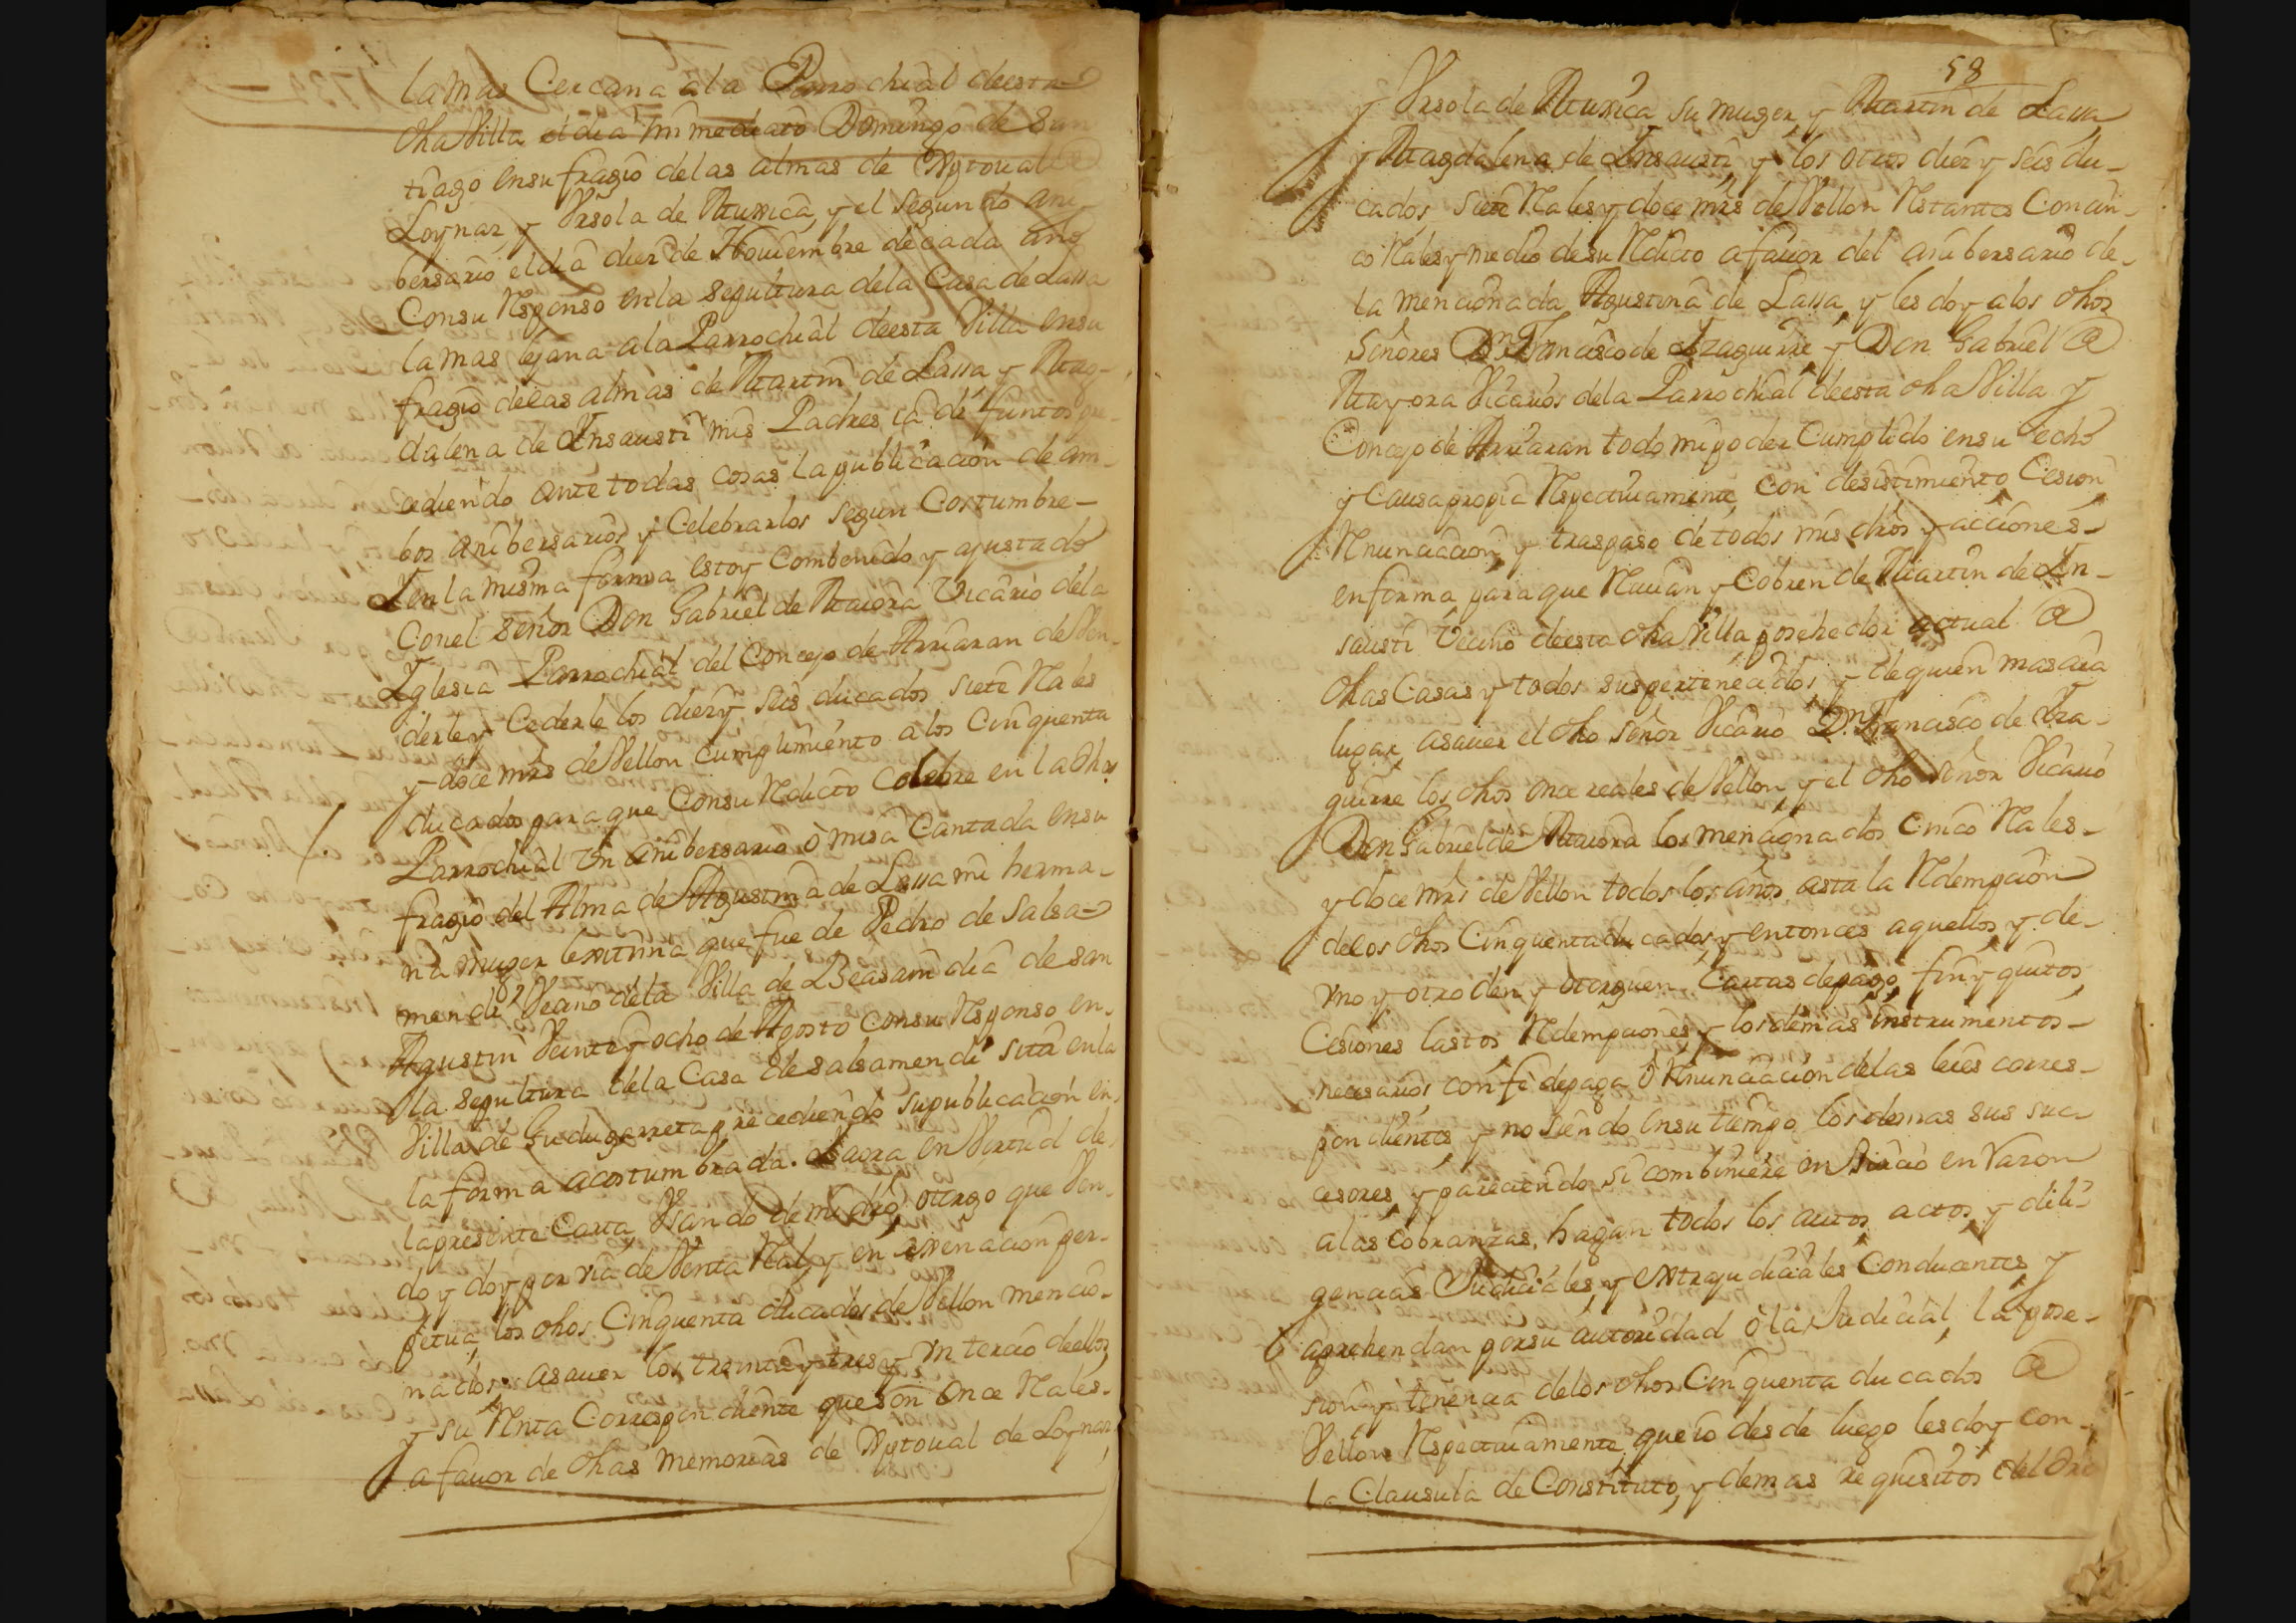 la mas Cercana ala Parrochial deesta
dha Villa el dia immediato Domingo de San
tiago en sufragio delas almas de Xptoual de
Loynaz, y Vrsola de Muxica, y el Segundo Ani
bersario el dia diez de Nouiembre de cada año
Con su Responso en la sepultura dela Casa de Lassa
la mas lejana ala Parrochial deesta Villa en su
fragio delas almas de Martin de Lassa y Mag-
dalena de Ynsausti mis Padres ia difuntos pre
cediendo ante todas cosas la publicacion de am-
bos anibersarios y Celebrarlos segun Costumbre-
Y en la misma forma estoy Combenido y ajustado
Con el señor Don Gabriel de Maiora Vicario dela
Yglesia Parrochial del Concejo de Arriaran de Ven-
derle y Cederle los diez y seis ducados siete Rales
y doce mrs de Vellon cumplimiento a los Cinquenta
ducados para que Con su Redicto Celebre en la dha
Parrochial Vn anibersario ò misa Cantada en su
fragio del Alma de Agustina de Lassa mi herma-
na muger lexitima que fue de Pedro de Salsa-
mendi Vecino dela Villa de Beasain dia de san
Agustin Veinte y ocho de Agosto Con su Responso en-
la sepultura dela Casa de salsamendi sita en la
Villa de Gudugarreta precediendo su publicacion en
la forma acostumbrada. Y aora en Virtud de
la presente Carta, Vsando de mi dro, otorgo que Ven-
do y doy por via de Venta Ral, y en enaxenacion per-
petua, los dhos Cinquenta ducados de Vellon mencio-
nados. asauer los treinta y tres y vn tercio deellos
y su Renta Correspondiente que son Once Rales-
a fauor de dhas memorias de Xptoual de Loynaz,
58
y Vrsola de Muxica su muger, y Martin de Lassa
y Magdalena de Ynsausti, y los otros diez y seis du-
cados, siete Rales y doce mrs de Vellon Restantes Con cin-
co Rales y medio de su Redicto a fauor del anibersario de-
la mencionada Agustina de Lassa, y les doy a los dhos
Señores Dn Francisco de Yzaguirre y Don Gabriel de
Mayora Vicarios dela Parrochial deesta dha Villa y
Concejo de Arriaran todo mi poder Cumplido en su fecho
y Causa propia Respectiuamente, con desistimiento, Cesion
Renunciacion, y traspaso de todos mis dros y acciones-
en forma para que Reciuan y Cobren de Martin de Yn-
sausti Vecino deesta dha Villa posehedor actual de
dhas Casas y todos sus pertenecidos, y de quien mas aia
lugar, asauer el dho señor Vicario Dn Francisco de Yza-
guirre los dhos once reales de Vellon, y el dho señor Vicario
Don Gabriel de Maiora los mencionados Cinco Rales-
y doce mrs de Vellon todos los años, asta la Redempcion
delos dhos Cinquenta ducados, y entonces aquellos, y de-
vno y otro den y otorguen Cartas de pago, fin y quitos,
Cesiones lastos Redempciones, y los demas instrumentos-
necesarios con fe de paga ò Renunciacion delas leies corres-
pondientes, y no siendo en su tiempo, los demas sus suc
cesores, y pareciendo si combiniere en Juicio en razon
a las Cobranzas, hagan todos los autos, actos, y dili-
gencias Judiciales, y extrajudiciales Conducentes, y
aprehendan por su autoridad ò la Judicial, la pose-
sion y tenencia delos dhos Cinquenta ducados de
Vellon Respectiuamente, que io desde luego les doy con-
la Clausula de Constituto, y demas requisitos del dro